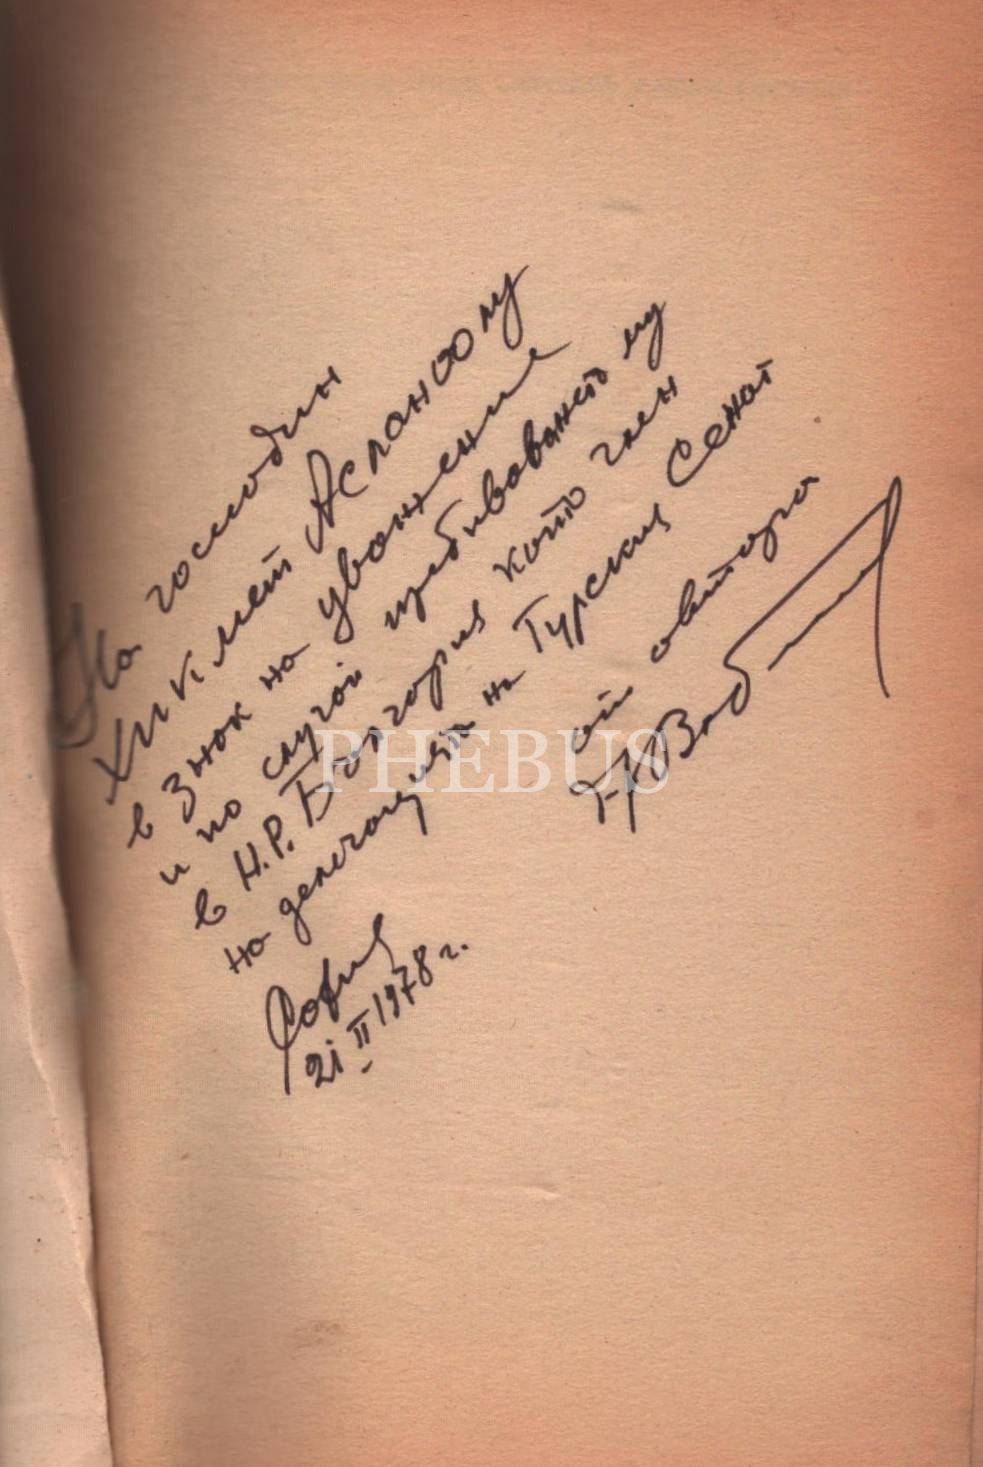 На господин
Хикмет Асланоолу
в знак на уважение
и по случай пребиваването му
в Н.Р. България като член
на делегация на Турския Сенат
от автора
София
21 II 1978 г.
PHEBUS